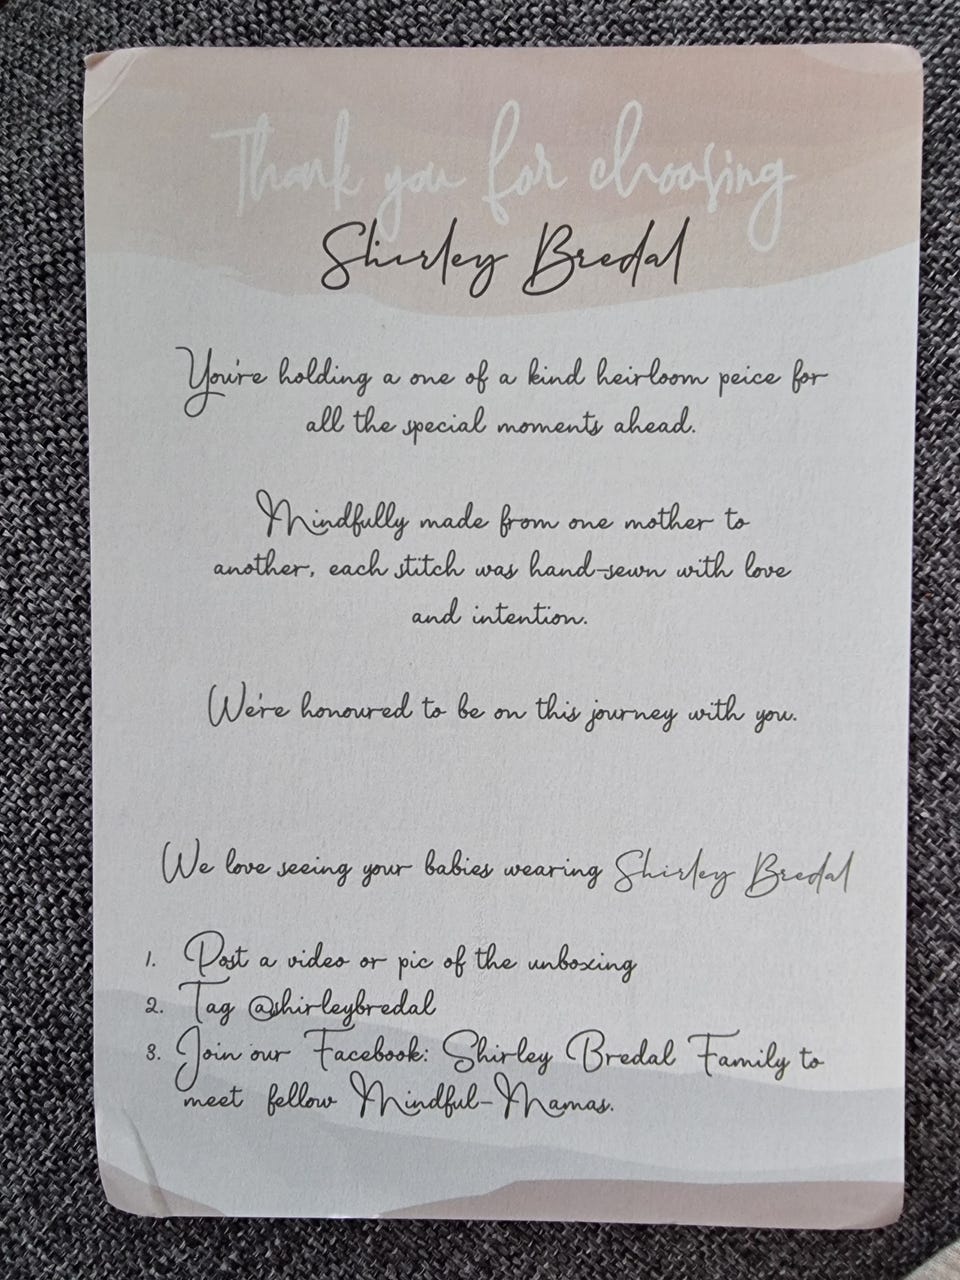 Thank you for choosing
Shirley Bredal
You're holding a one of a kind heirloom peice for
all the special moments ahead.
Mindfully made from one mother to
another, each stitch was hand-sewn with love
and intention.
We're honoured to be on this journey with you.
We love seeing your babies wearing Shirley Bredal
1. Post a video or pic of the unboxing
2. Tag @shirleybredal
3. Join our Facebook: Shirley Bredal Family to
meet fellow Mindful-Mamas.